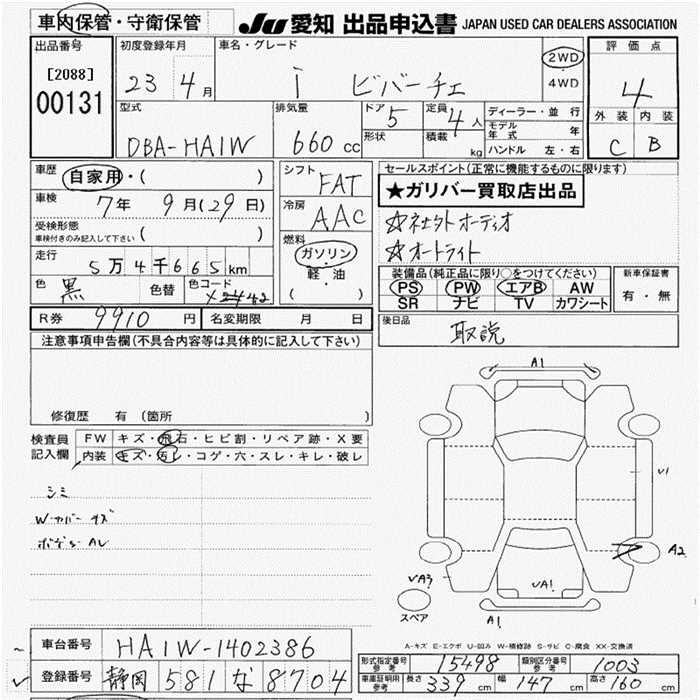 車内保管・守衛保管 JU 愛知 出品申込書 JAPAN USED CAR DEALERS ASSOCIATION
出品番号 初度登録年月 車名・グレード 評価点
[2088] 23年 4月 i ビバーチェ 2WD・4WD 4
00131 外装 内装
型式 排気量 ドア 5 定員 4人 ディーラー・並行 C B
DBA-HA1W 660cc 形状 積載 kg モデル年式 年
ハンドル 左・右
車歴 自家用・( ) シフト FAT セールスポイント(正常に機能するものに限ります)
車検 7年 9月(29日) 冷房 AAC ★ガリバー買取店出品
受検形態 ( ) ☆社外オーディオ
車検付きのみ記入して下さい
燃料 ガソリン・軽・油 ( ) ☆オートライト
走行 5万4千665km 装備品(純正品に限り○をつけてください) 新車保証書
色 黒 色替 色コード X42 PS PW エアB AW 有・無
SR ナビ TV カワシート
R券 9910円 名変期限 月 日 後日品 取説
注意事項申告欄(不具合内容等は具体的に記入して下さい)
修復歴 有 (箇所
検査員記入欄 FW キズ・飛石・ヒビ割・リペア跡・X要
内装 キズ・汚レ・コゲ・穴・スレ・キレ・破レ
シミ
W-カバーキズ
A1
U1
A2
VA3
VA1
A1
スペア
A-キズ E-エクボ U-凹み W-補修跡 S-サビ C-腐食 XX-交換済
車台番号 HA1W-1402386
登録番号 静岡 581 な 8704
型式指定番号 参考 15498 類別区分番号 参考 1003
車庫証明用 参考 長さ 339cm 幅 147cm 高さ 160cm